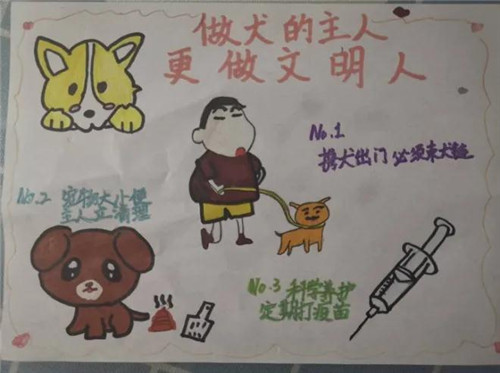 做犬的主人
更做文明人
No.1
携犬出门必须束犬链
No.2 宠物大小便
主人立清理
No.3 科学养护
定期打疫苗